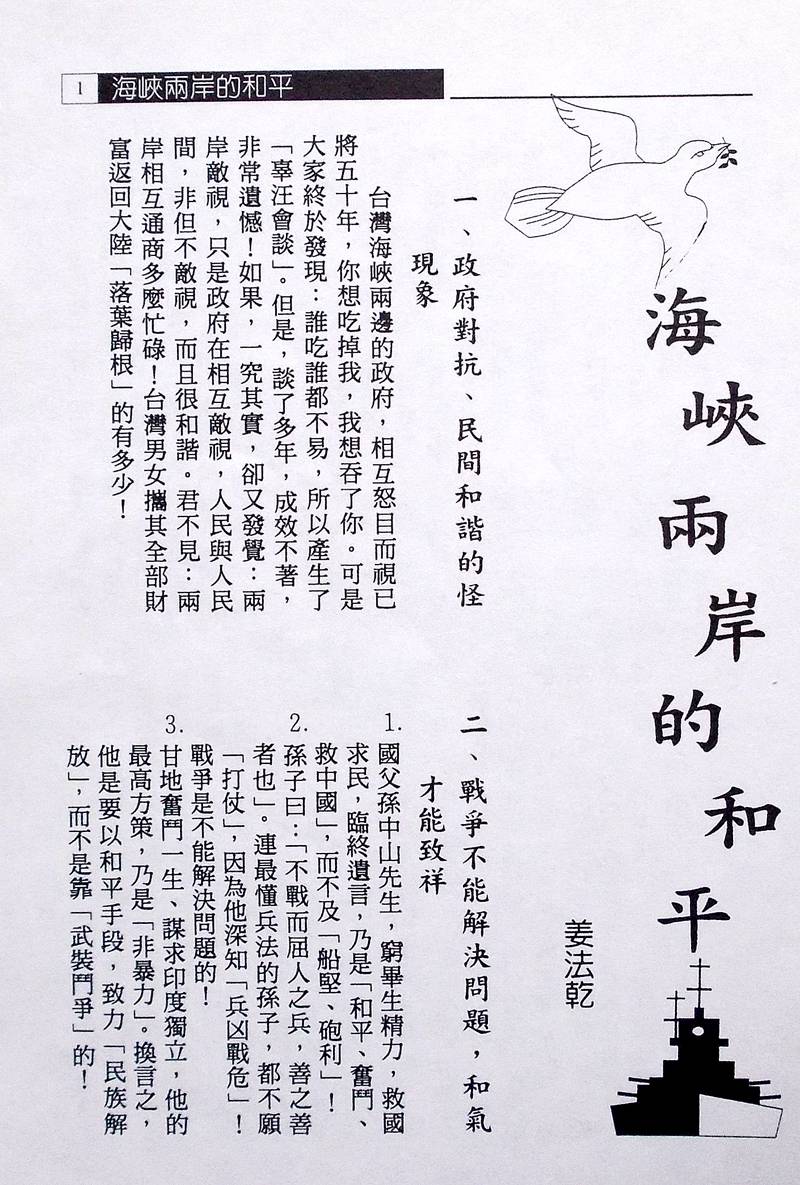 1 海峽兩岸的和平
海峽兩岸的和平
姜法乾
一、政府對抗、民間和諧的怪
現象
台灣海峽兩邊的政府，相互怒目而視已
將五十年，你想吃掉我，我想吞了你。可是
大家終於發現：誰吃誰都不易，所以產生了
「辜汪會談」。但是，談了多年，成效不著，
非常遺憾！如果，一究其實，卻又發覺：兩
岸敵視，只是政府在相互敵視，人民與人民
間，非但不敵視，而且很和諧。君不見：兩
岸相互通商多麼忙碌！台灣男女攜其全部財
富返回大陸「落葉歸根」的有多少！
二、戰爭不能解決問題，和氣
才能致祥
1.國父孫中山先生，窮畢生精力，救國
求民，臨終遺言，乃是「和平、奮鬥、
救中國」，而不及「船堅、砲利」！
2.孫子曰：「不戰而屈人之兵，善之善
者也」。連最懂兵法的孫子，都不願
「打仗」，因為他深知「兵凶戰危」！
戰爭是不能解決問題的！
3.甘地奮鬥一生、謀求印度獨立，他的
最高方策，乃是「非暴力」。換言之，
他是要以和平手段，致力「民族解
放」，而不是靠「武裝鬥爭」的！